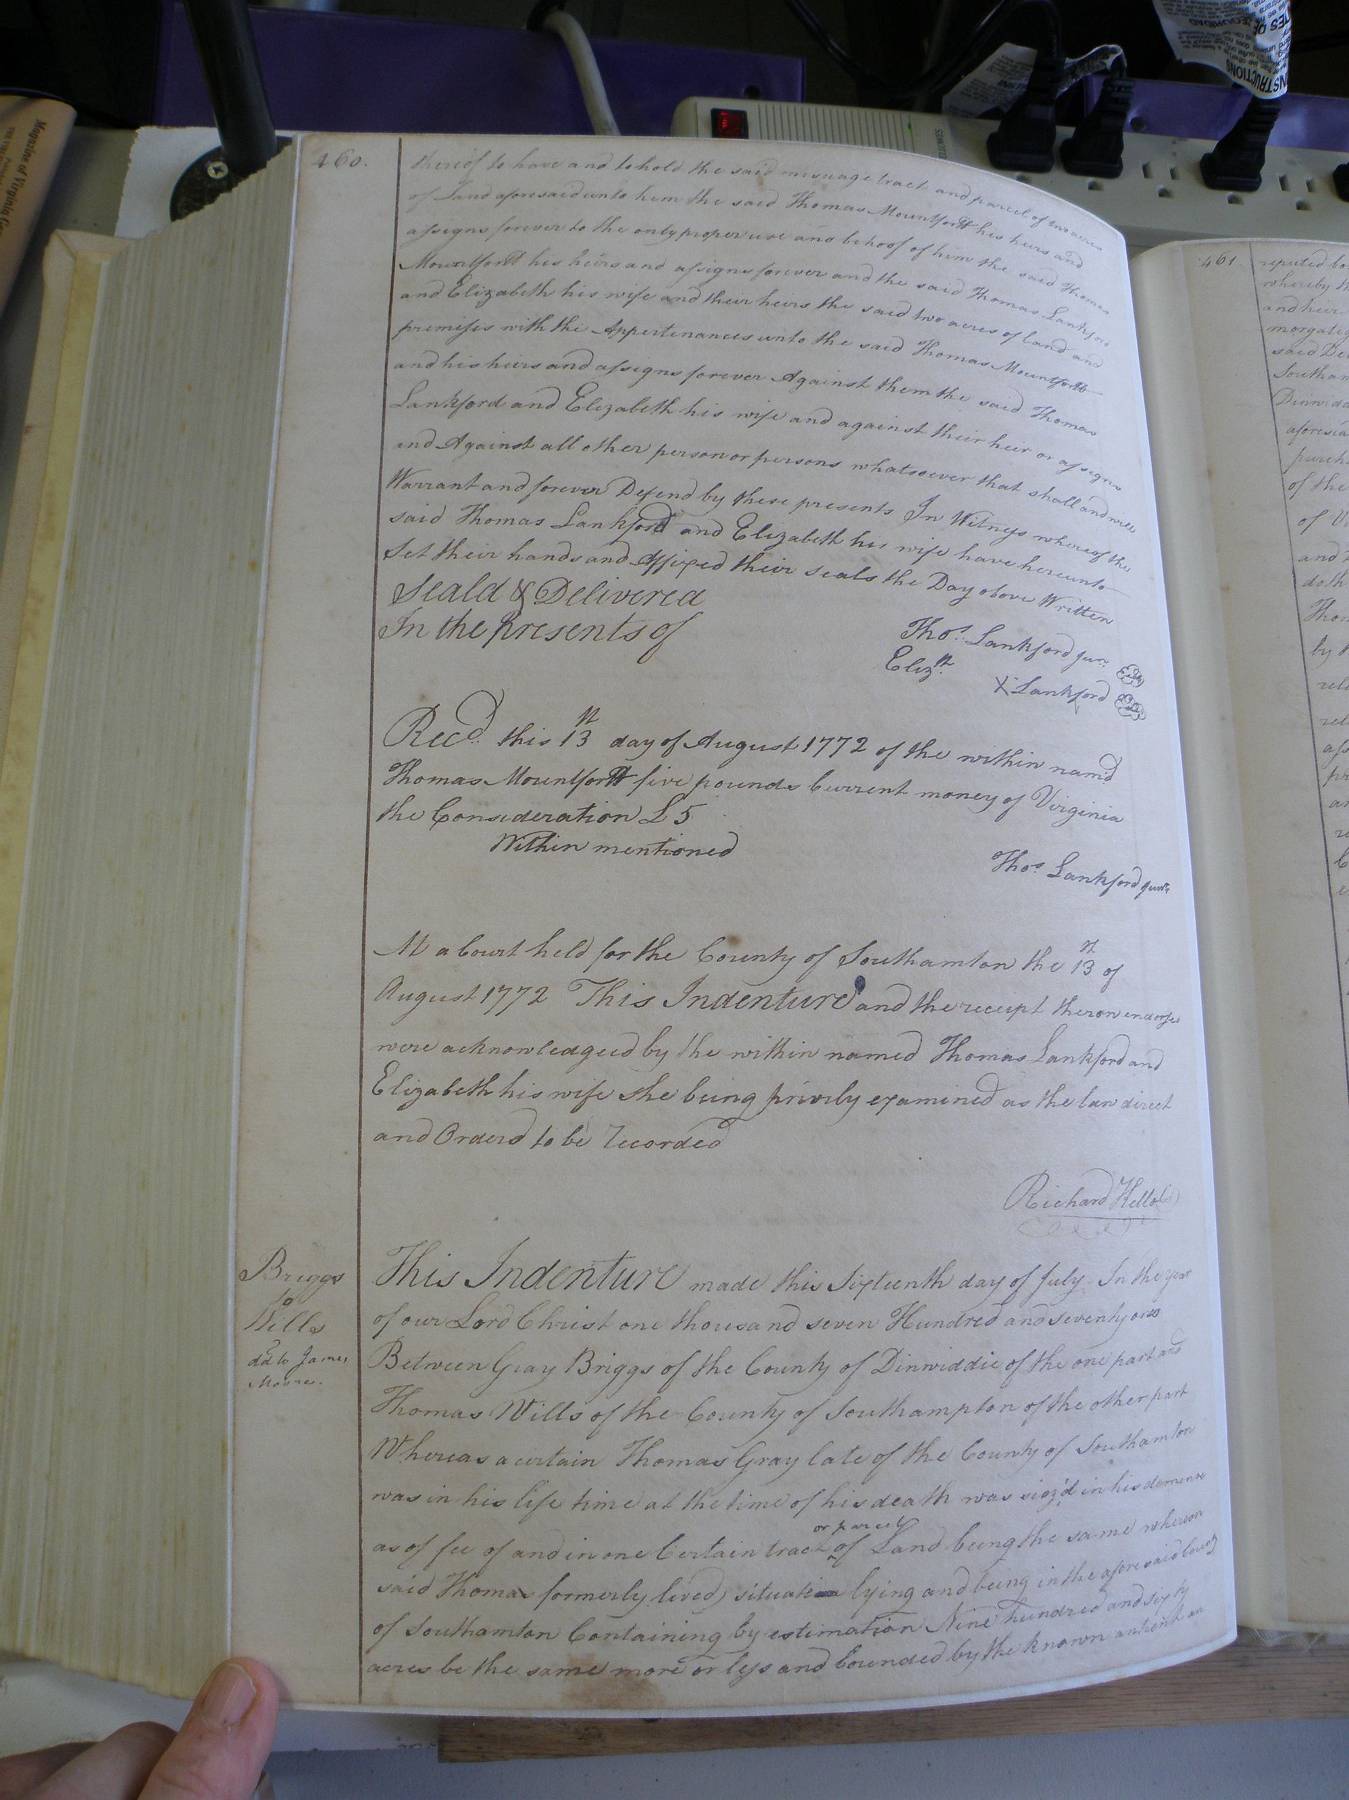 460.
thereof to have and to hold the said misuage tract and parcel of two acres
of Land aforesaid unto him the said Thomas Mountfortt his heirs and
assigns forever to the only proper use and behoof of him the said Thomas
Mountfortt his heirs and assigns forever and the said Thomas Lankford
and Elizabeth his wife and their heirs the said two acres of land and
premises with the Appertenances unto the said Thomas Mountfortt
and his heirs and assigns forever Against them the said Thomas
Lankford and Elizabeth his wife and against their heir or assigns
and Against all other person or persons whatsoever that shall and will
Warrant and forever Defend by these presents In Witness whereof the
said Thomas Lankford and Elizabeth his wife have hereunto
Set their hands and Affixed their seals the Day above Written
Seald & Delivered
In the presents of
Thos. Lankford junr.
Elizth.
X Lankford
Recd. this 13th day of August 1772 of the within namd
Thomas Mountfortt five pounds Current money of Virginia
the Consideration £5
Within mentioned
Thos. Lankford junr.
At a Court held for the County of Southamton the 13th of
August 1772 This Indenture and the receipt theron endorsed
were acknowledged by the within named Thomas Lankford and
Elizabeth his wife she being privily examined as the law direct
and Orderd to be recorded
Richard Kello
Briggs
to
Wills
dd to James
Moore.
This Indenture made this Sixteenth day of July In the year
of our Lord Christ one thousand seven Hundred and seventy one
Between Gray Briggs of the County of Dinwiddie of the one part and
Thomas Wills of the County of Southampton of the other part
Whereas a certain Thomas Gray late of the County of Southamton
was in his life time at the time of his death was siez'd in his demense
or parcel
as of fee of and in one Certain tract of Land being the same whereon
said Thomas formerly lived situate lying and being in the aforesaid County
of Southamton Containing by estimation Nine hundred and sixty
acres be the same more or less and bounded by the known antient
461.
reputed
whereby
and heir
said
Southam
Dinwid
of the
by